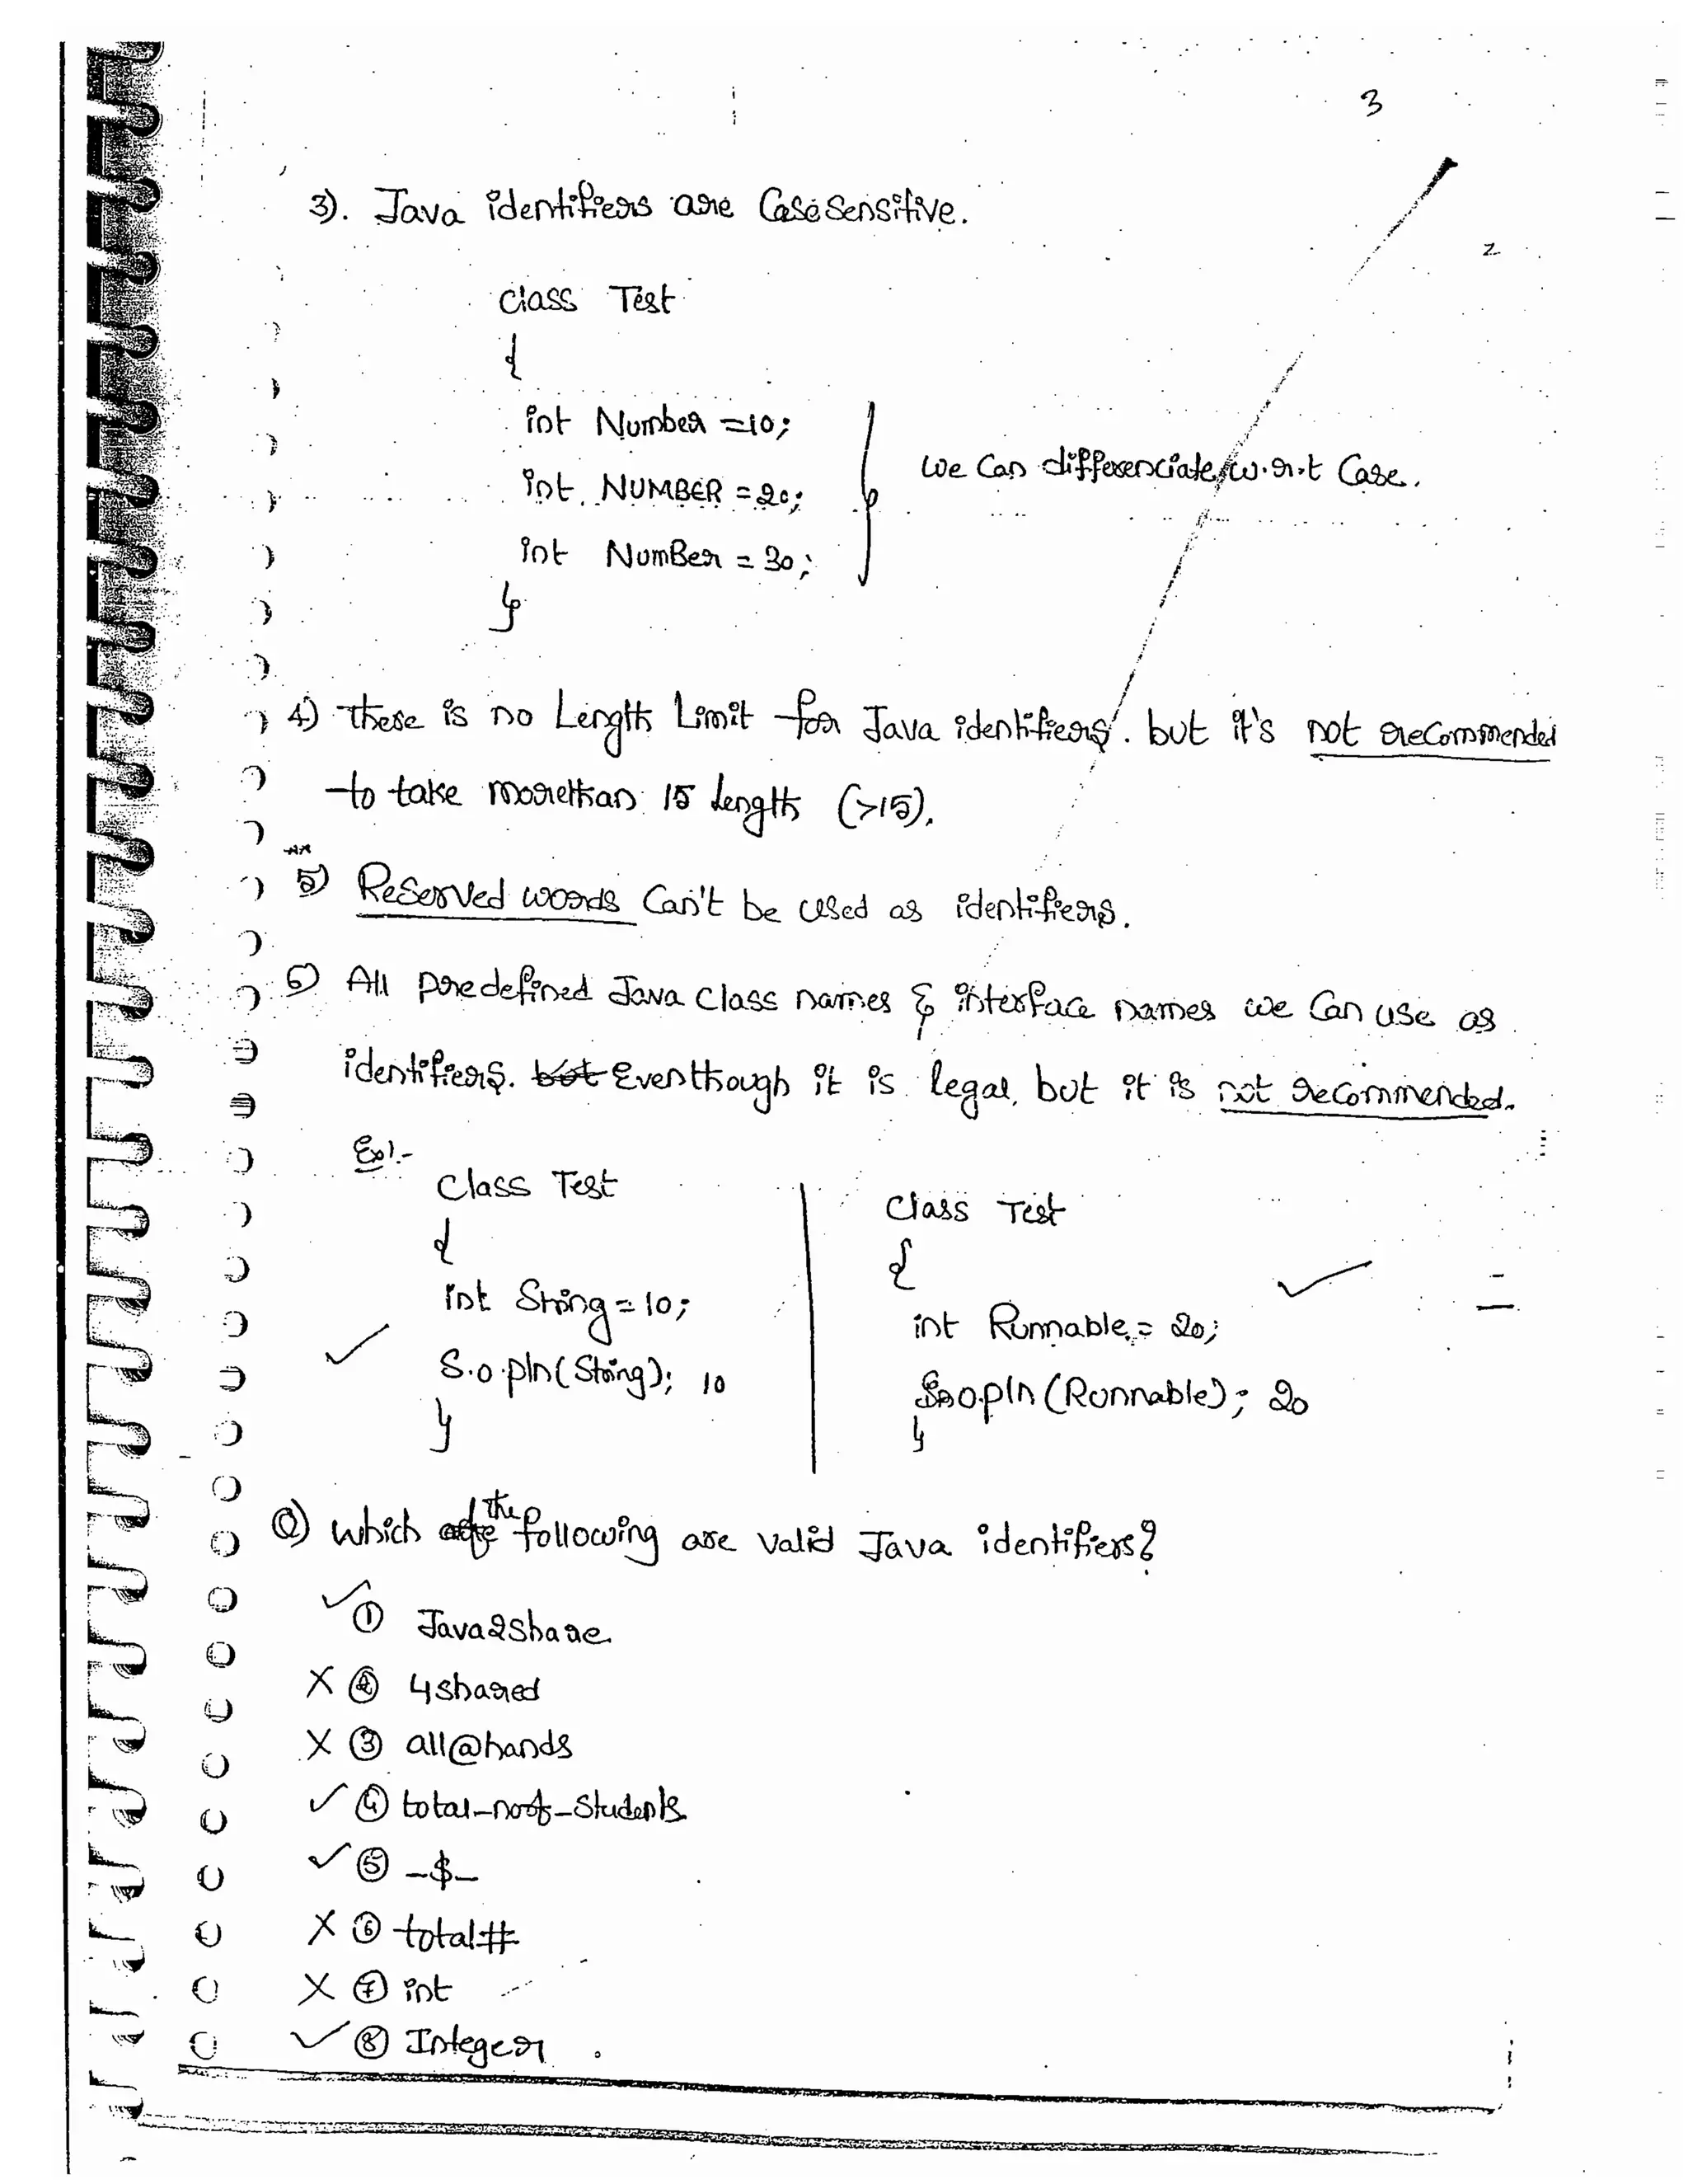 3
2
3). Java identifiers are Case Sensitive.
class Test
{
int Number = 10;
int NUMBER = 20;
int NumBer = 30;
}
we Can differenciate w.r.t Case.
4) there is no Length Limit for Java identifiers. but it's not recommended
to take morethan 15 length (>15).
5) Reserved words Can't be used as identifiers.
6) All predefined Java class names & interface names we Can use as
identifiers. but Eventhough it is legal, but it is not recommended.
Ex:-
class Test
{
int String = 10;
S.o.pln(String); 10
}
class Test
{
int Runnable = 20;
S.o.pln(Runnable); 20
}
Q) which of the following are valid Java identifiers?
✓ ① Java2Share
X ② 4shared
X ③ all@hands
✓ ④ total_noof_students
✓ ⑤ _$_
X ⑥ total#
X ⑦ int
✓ ⑧ Integer